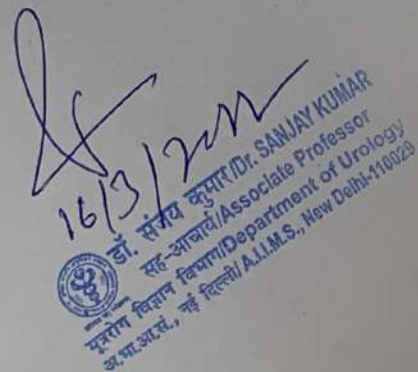 16/3/2022
डॉ. संजय कुमार/Dr. SANJAY KUMAR
सह-आचार्य/Associate Professor
मूत्ररोग विज्ञान विभाग/Department of Urology
अ.भा.आ.सं., नई दिल्ली/A.I.I.M.S., New Delhi-110029